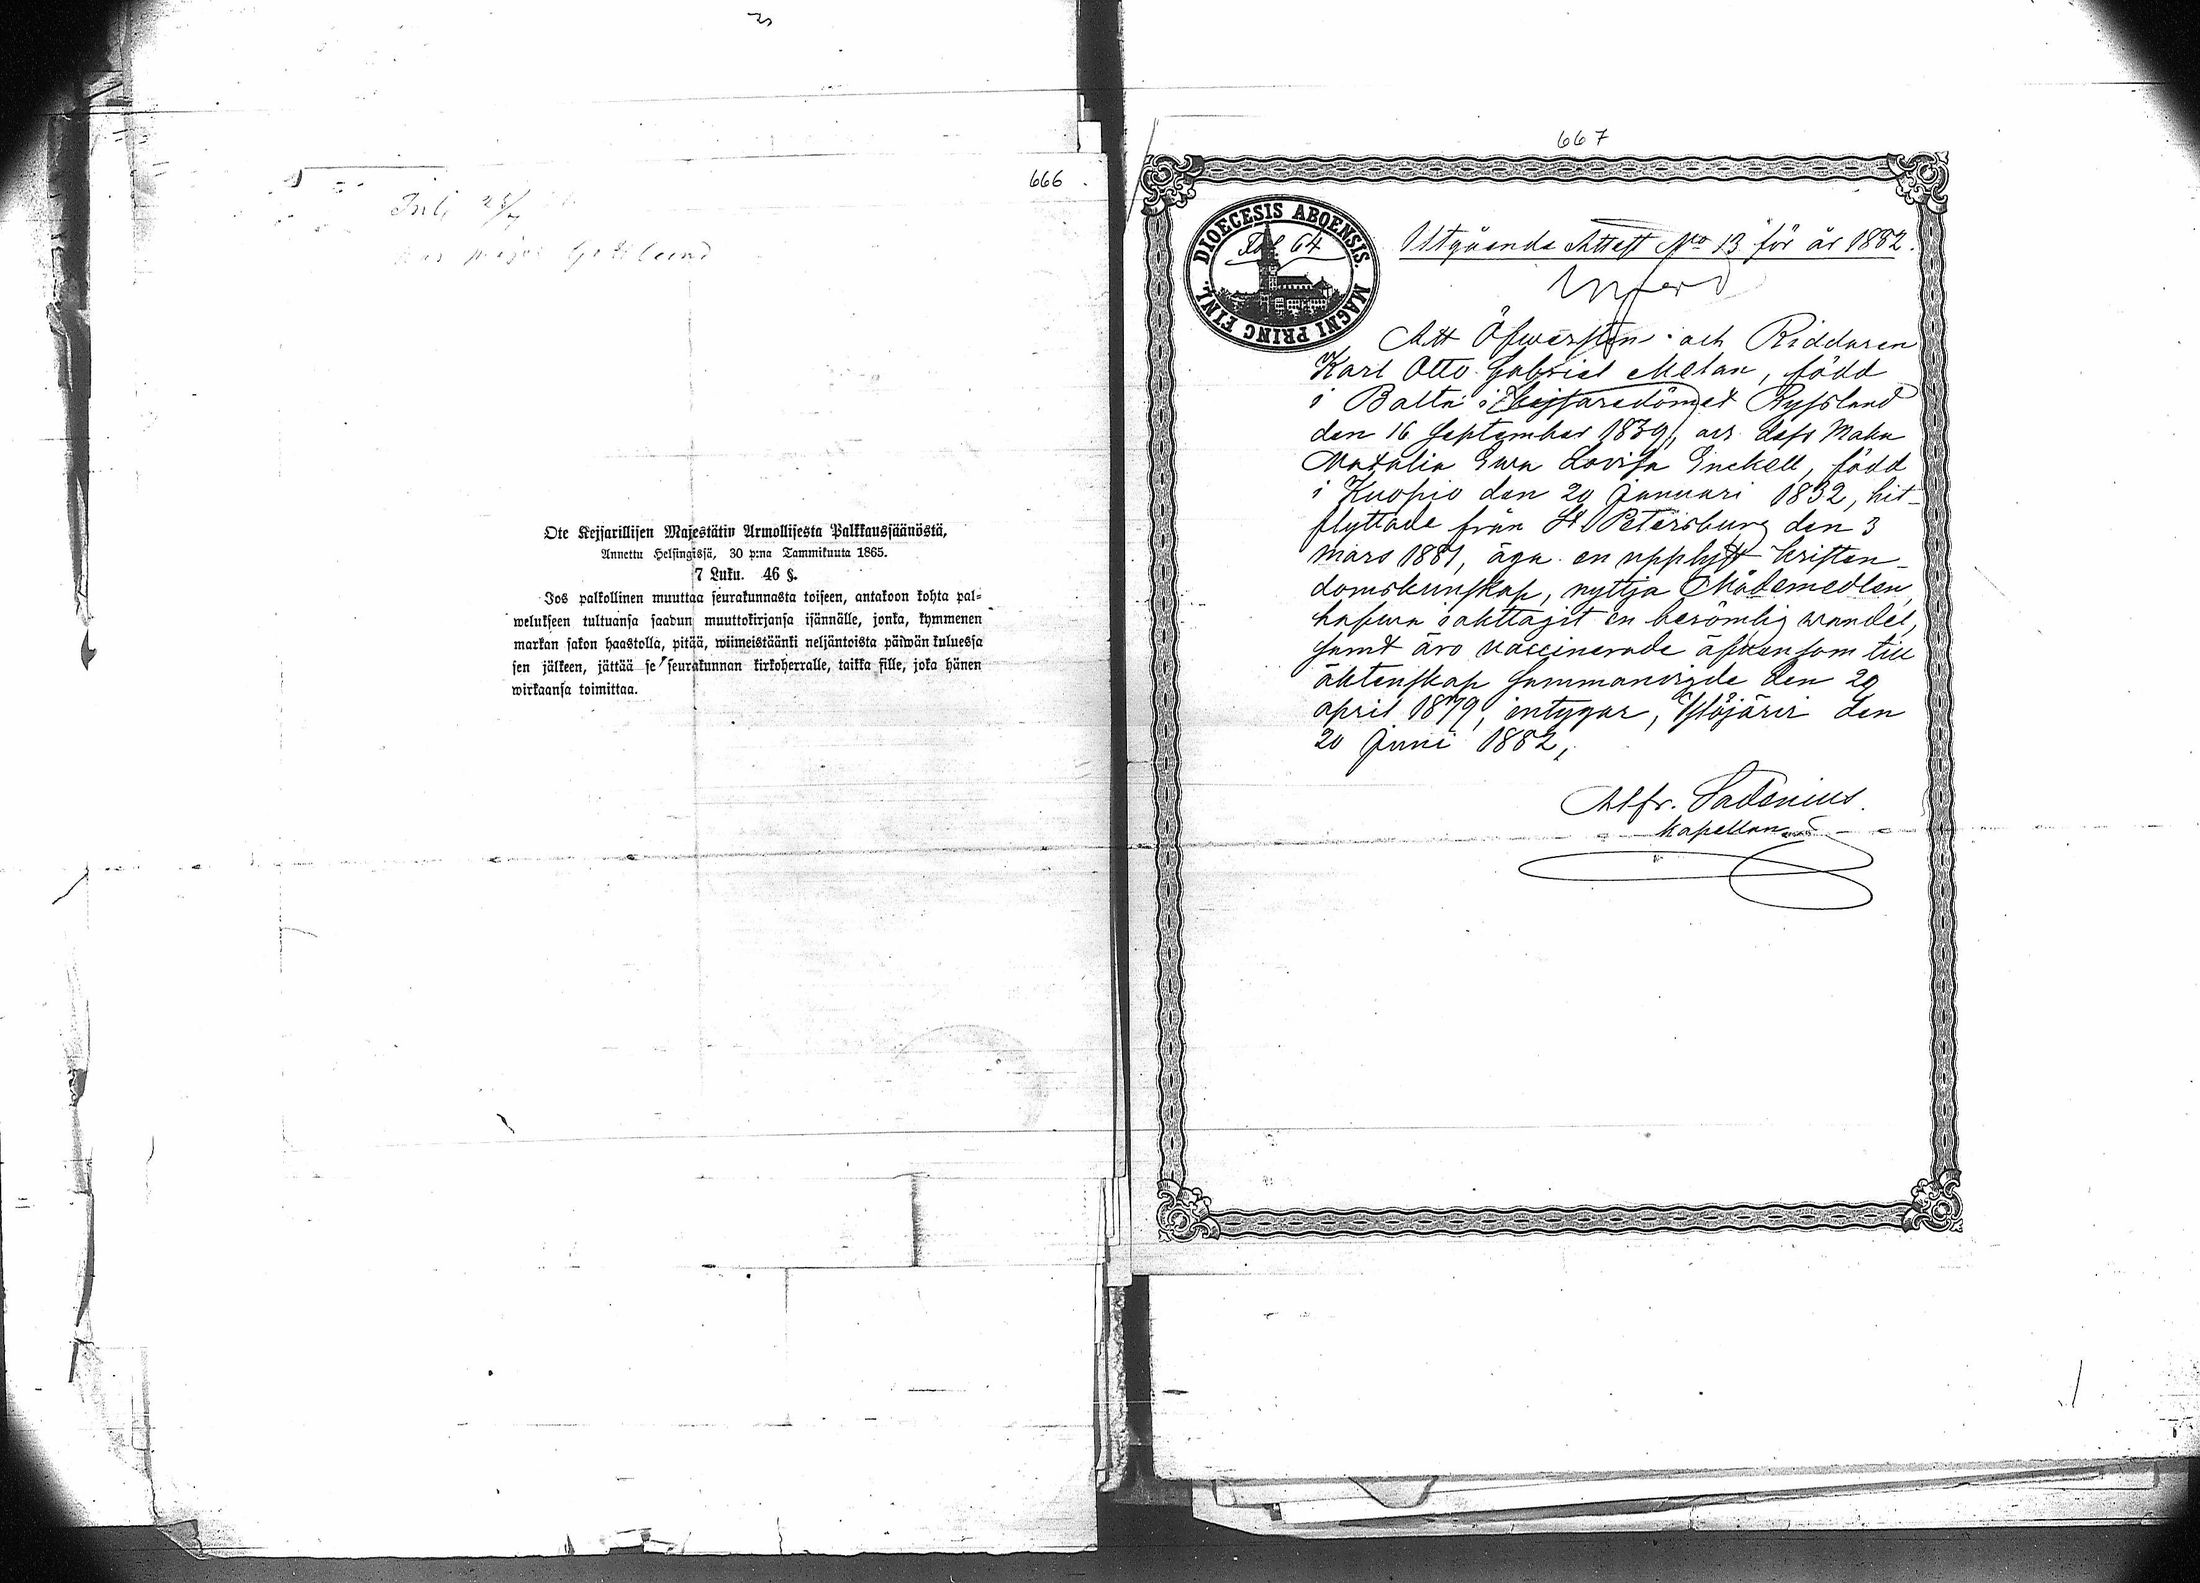 666
Ote Kejsarillisen Majestätin Armollisesta Palkkaussäänöstä,
Annettu Helsingissä, 30 p:na Tammikuuta 1865.
7 Luku. 46 §.
Jos palkollinen muuttaa seurakunnasta toiseen, antakoon kohta pal=
welukseen tultuansa saadun muuttokirjansa isännälle, jonka, kymmenen
markan sakon haastolla, pitää, wiimeistäänki neljäntoista päiwän kuluessa
sen jälkeen, jättää se seurakunnan kirkoherralle, taikka sille, joka hänen
wirkaansa toimittaa.
667
DIOECESIS ABOENSIS. MAGNI PRINC FINL.
64
Utgående Attest No 13 för år 1882.
Att Öfwersten och Riddaren
Karl Otto Gabriel Melan, född
i Balta i Kejsaredömet Ryssland
den 16 September 1839, och dess Maka
Natalia Ewa Lovisa Enckell, född
i Kuopio den 20 Januari 1832, hit-
flyttade från St Petersburg den 3
mars 1881, äga en upplyst kristen-
domskunskap, nyttja Nådemedlen,
hafwa iakttagit en berömlig wandel,
samt äro vaccinerade äfwensom till
äktenskap sammanvigde den 20
april 1879, intygar, Ylöjärvi den
20 Juni 1882,
Alfr. Ladenius.
Kapellan